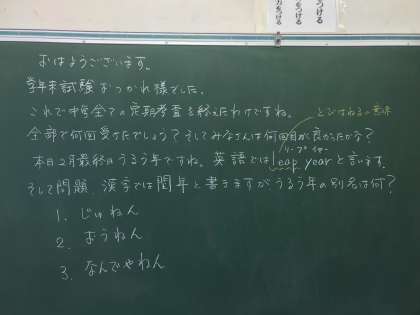 つける
力をつける
をつける
おはようございます。
学年末試験おつかれ様でした。
これで中学全ての定期考査を終えたわけですね。
とびはねるの意味
全部で何回受けたでしょう？そしてみなさんは何回目が良かったかな？
リープ イヤー
本日2月最終日うるう年ですね。英語ではleap yearと言います。
そして問題、漢字では閏年と書きますがうるう年の別名は何？
1. じゅねん
2. おうねん
3. なんでやねん